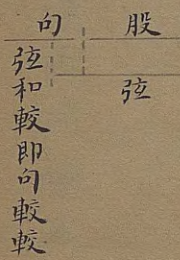 股
弦
句
弦和較即句較較